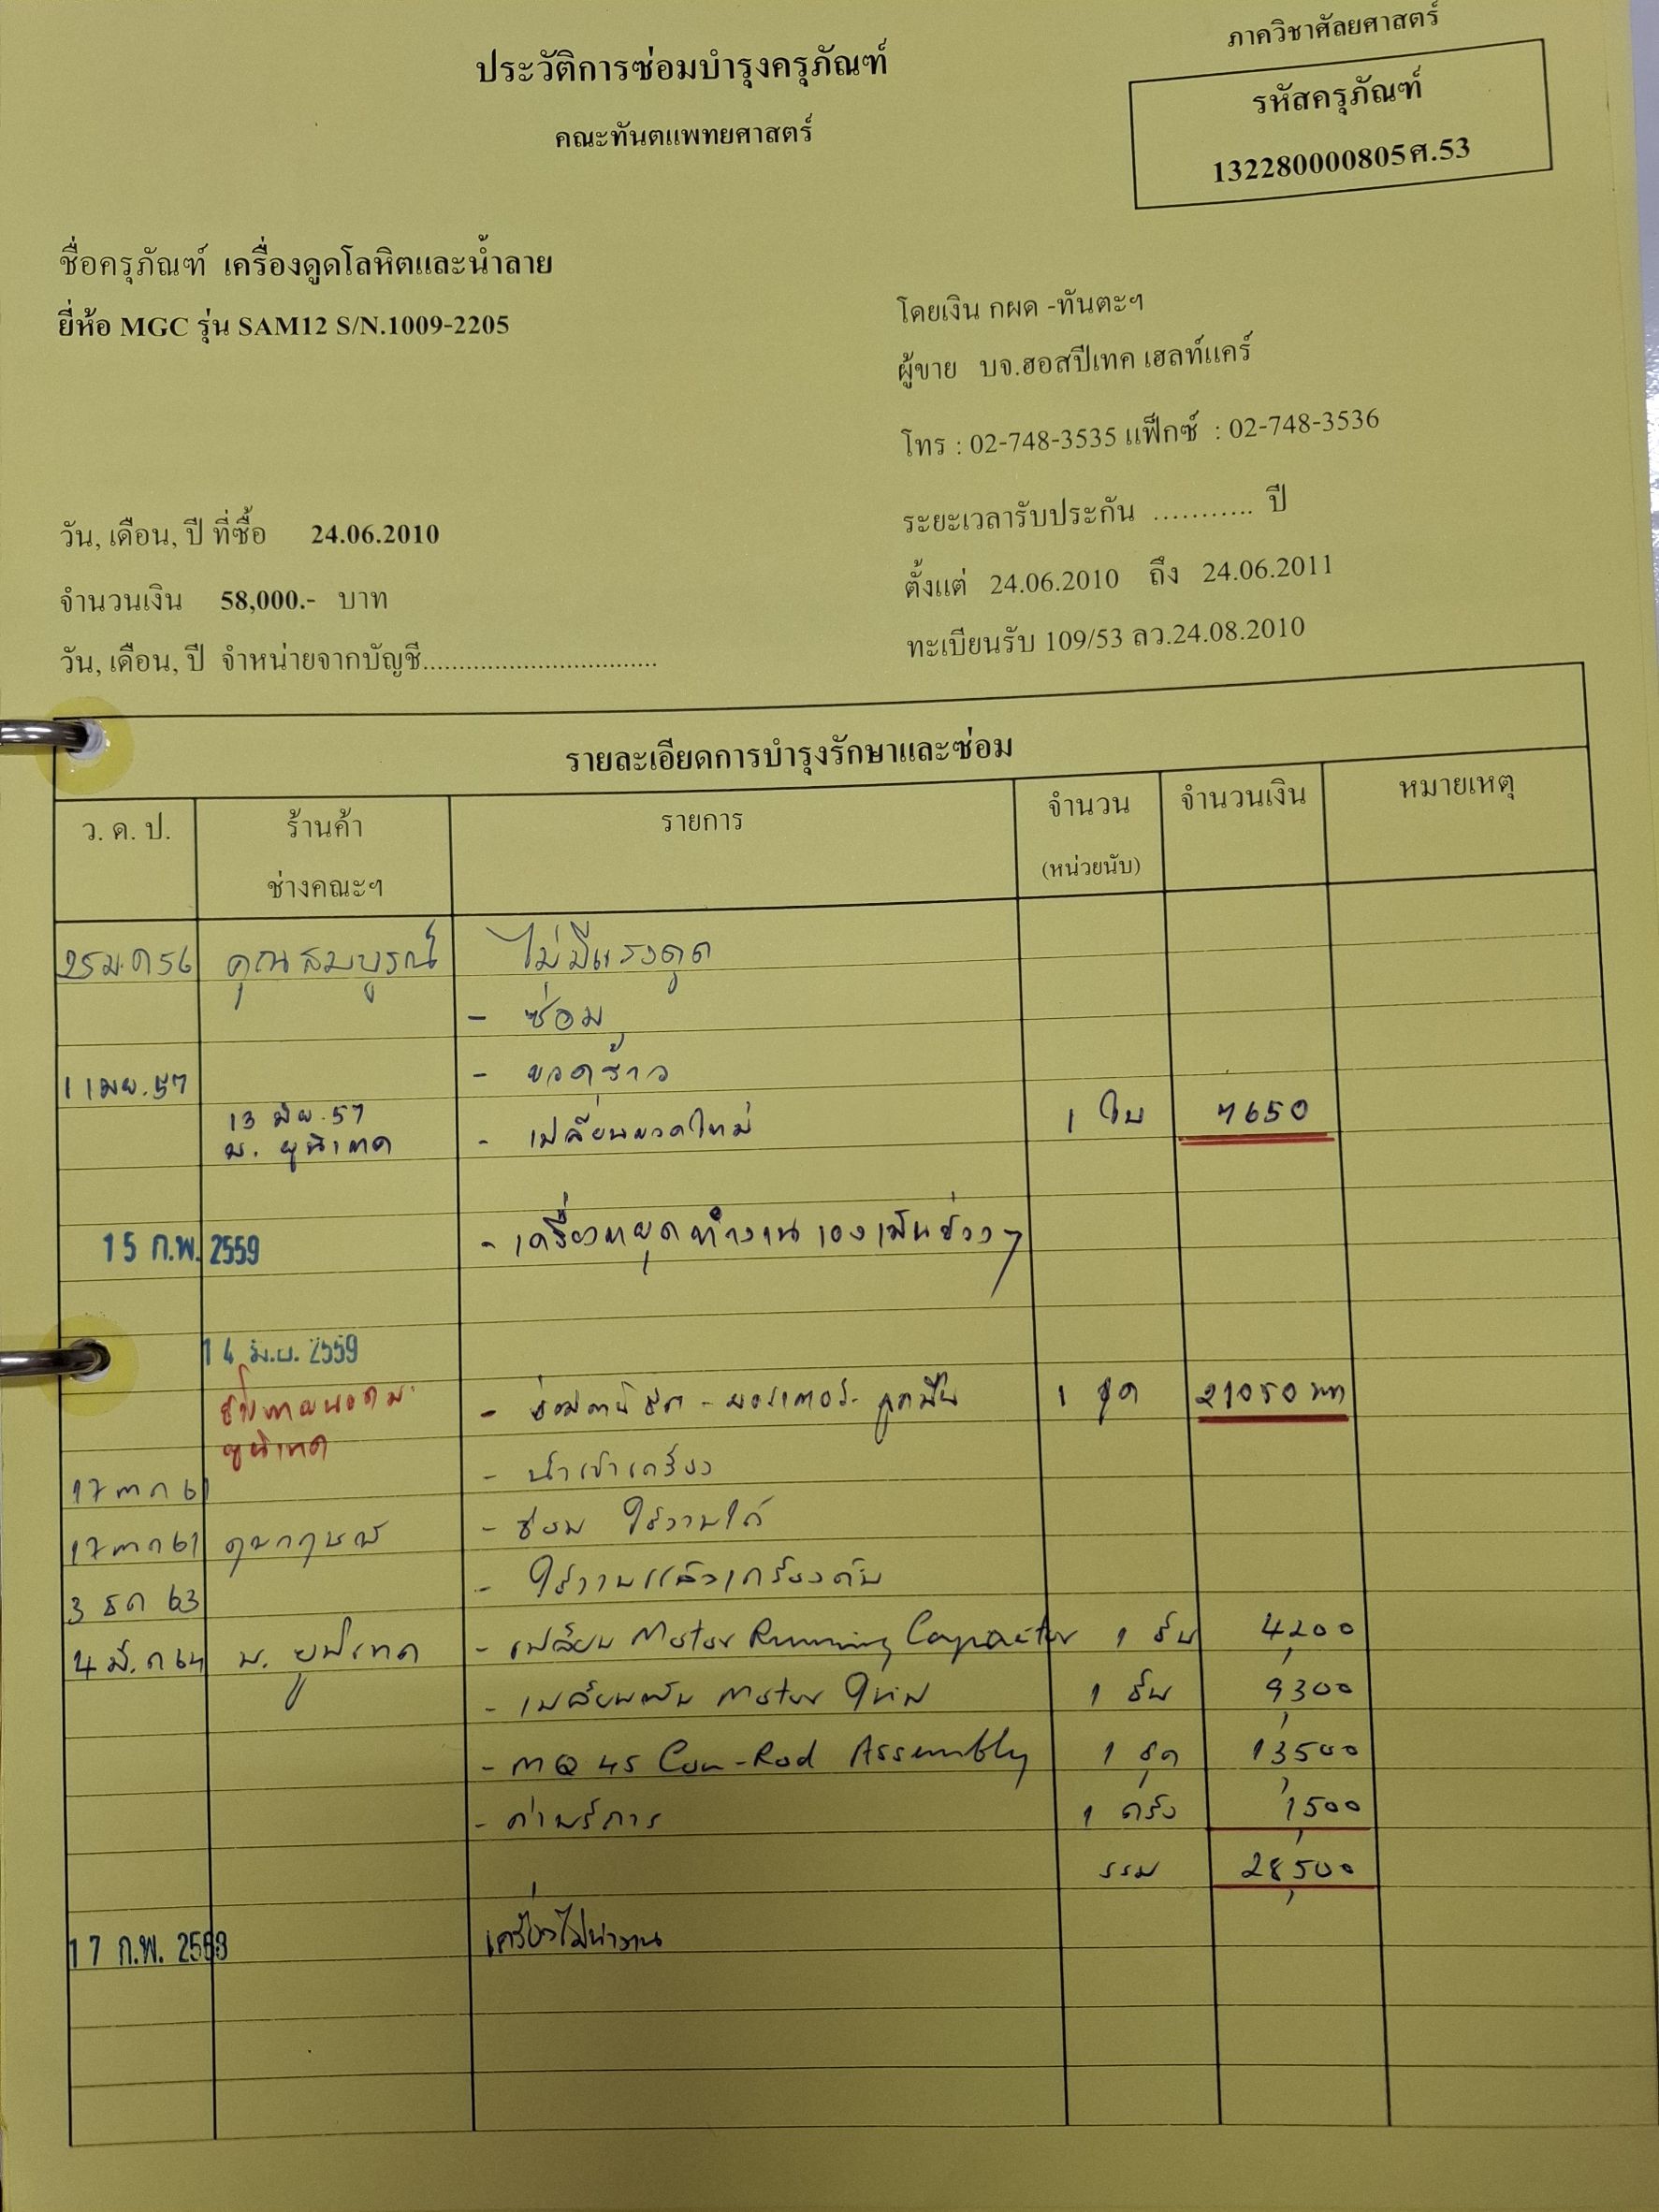 ภาควิชาศัลยศาสตร์
ประวัติการซ่อมบำรุงครุภัณฑ์
คณะทันตแพทยศาสตร์
รหัสครุภัณฑ์
132280000805ศ.53
ชื่อครุภัณฑ์ เครื่องดูดโลหิตและน้ำลาย
ยี่ห้อ MGC รุ่น SAM12 S/N.1009-2205
โดยเงิน กผด -ทันตะฯ
ผู้ขาย บจ.ฮอสปีเทค เฮลท์แคร์
โทร : 02-748-3535 แฟ็กซ์ : 02-748-3536
วัน, เดือน, ปี ที่ซื้อ 24.06.2010
ระยะเวลารับประกัน ........... ปี
จำนวนเงิน 58,000.- บาท
ตั้งแต่ 24.06.2010 ถึง 24.06.2011
วัน, เดือน, ปี จำหน่ายจากบัญชี................................
ทะเบียนรับ 109/53 ลว.24.08.2010
รายละเอียดการบำรุงรักษาและซ่อม
ว. ด. ป. ร้านค้า รายการ จำนวน จำนวนเงิน หมายเหตุ
ช่างคณะฯ (หน่วยนับ)
25 ม.ค 56 คุณสมบูรณ์ ไม่มีแรงดูด
- ซ่อม
1 เมย.57 - ขวดร้าว
13 มิย.57
บ. ยูนิเทค - เปลี่ยนขวดใหม่ 1 ใบ 7650
15 ก.พ. 2559 - เครื่องหยุดทำงานเองเป็นช่วงๆ
14 มิ.ย. 2559
ยูนิเทค - มอเตอร์- ลูกปืน 1 ชุด 21050
17 ตค 61 - นำเข้าเครื่อง
17 ตค 61 - ซ่อม ใช้งานได้
3 ธค 63 - ใช้งานแล้วเครื่องดับ
4 มี.ค 64 บ. ยูนิเทค - เปลี่ยน Motor Running Capacitor 1 อัน 4,200
- Motor ใหม่ 1 อัน 9,300
- MQ 45 Con-Rod Assembly 1 ชุด 13,500
- ค่าบริการ 1 ครั้ง 1,500
รวม 28,500
17 ก.พ. เครื่องไม่ทำงาน